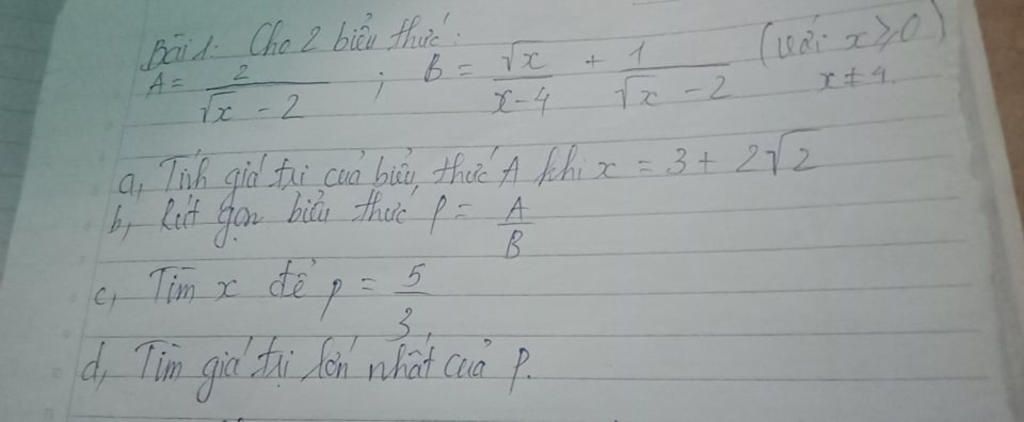 Bài 1: Cho 2 biểu thức:
A = \frac{2}{\sqrt{x} - 2} ; B = \frac{\sqrt{x}}{x - 4} + \frac{1}{\sqrt{x} - 2} (với x ≥ 0) x ≠ 4.
a, Tính giá trị của biểu thức A khi x = 3 + 2\sqrt{2}
b, Rút gọn biểu thức P = \frac{A}{B}
c, Tìm x để P = \frac{5}{3}.
d, Tìm giá trị lớn nhất của P.